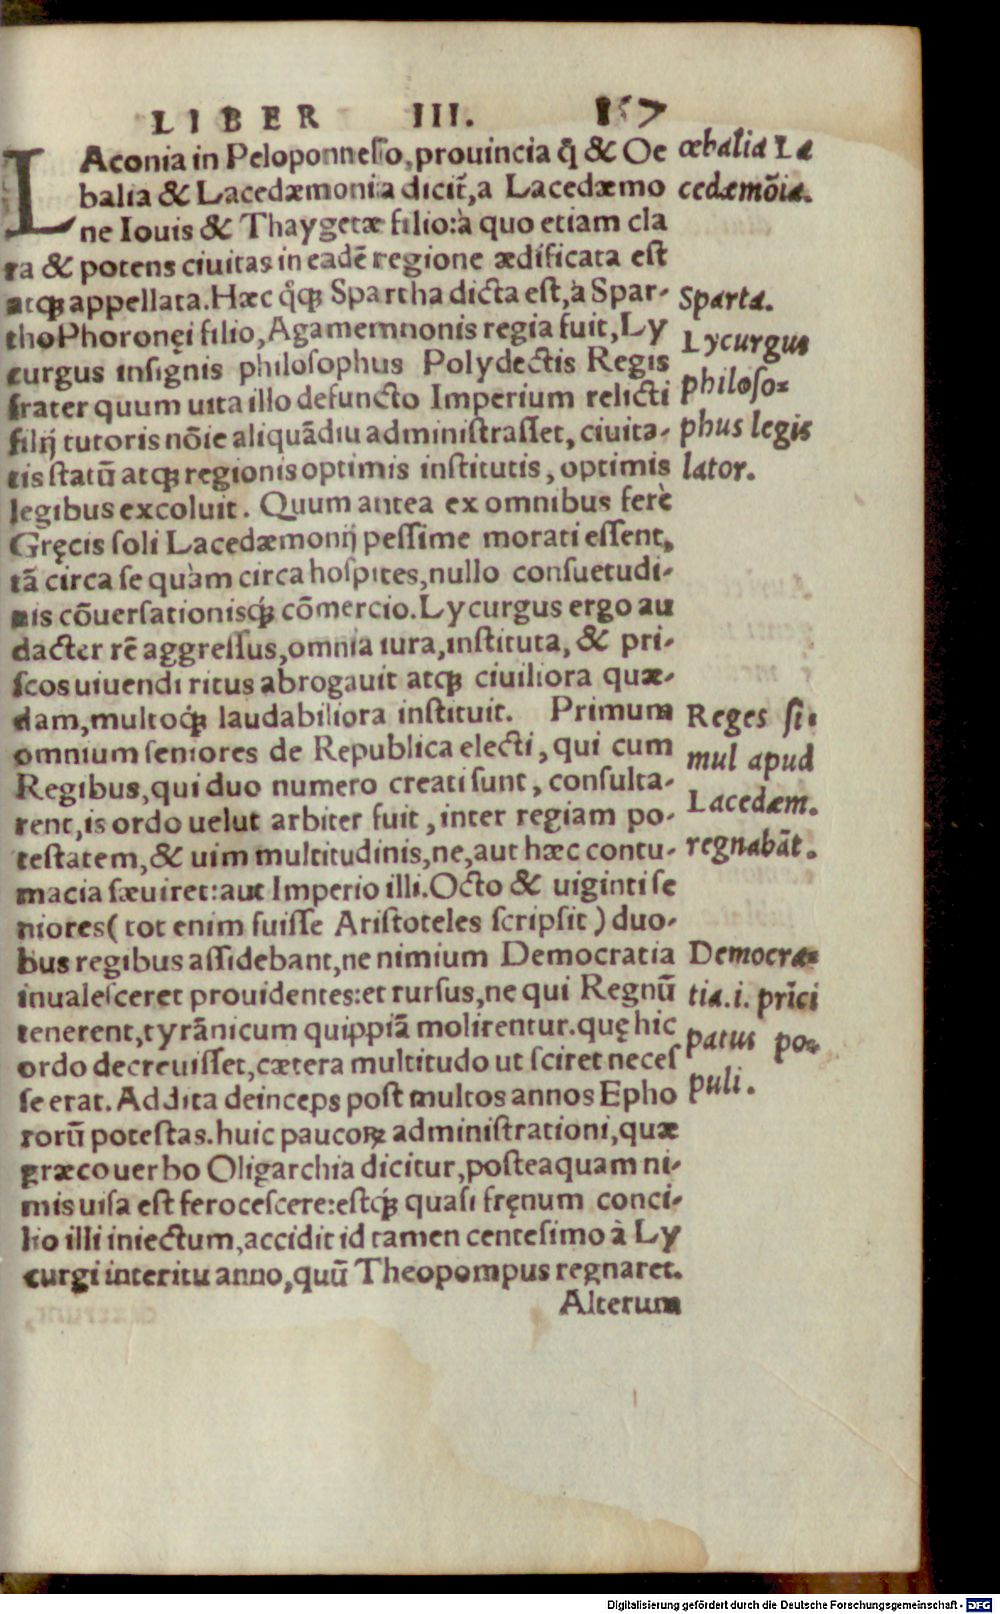 LIBER III. 157
LAconia in Peloponneſſo, prouincia q̄ & Oe
balia & Lacedæmonia dicit̃, a Lacedæmo
ne Iouis & Thaygetæ filio: à quo etiam cla
ra & potens ciuitas in eadē regione ædificata est
atq; appellata. Hæc q̊q; Spartha dicta est, à Spar-
tho Phoronęi filio, Agamemnonis regia fuit, Ly
curgus inſignis philoſophus Polydectis Regis
frater quum uita illo defuncto Imperium relicti
filij tutoris nōie aliquādiu adminiſtraſſet, ciuita-
tis ſtatū atq; regionis optimis inſtitutis, optimis
legibus excoluit. Quum antea ex omnibus ferè
Gręcis ſoli Lacedæmonij peſſime morati eſſent,
tā circa ſe quàm circa hoſpites, nullo conſuetudi-
nis cōuerſationisq; cōmercio. Lycurgus ergo au
dacter rē aggreſſus, omnia iura, inſtituta, & pri-
ſcos uiuendi ritus abrogauit atq; ciuiliora quæ-
dam, multoq; laudabiliora inſtituit. Primum
omnium ſeniores de Republica electi, qui cum
Regibus, qui duo numero creati ſunt, conſulta-
rent, is ordo uelut arbiter fuit, inter regiam po-
teſtatem, & uim multitudinis, ne, aut hæc contu-
macia ſæuiret: aut Imperio illi. Octo & uiginti ſe
niores ( tot enim fuiſſe Ariſtoteles ſcripſit ) duo-
bus regibus aſſidebant, ne nimium Democratia
inualeſceret prouidentes: et rurſus, ne qui Regnū
tenerent, tyrānicum quippiā molirentur. quę hic
ordo decreuiſſet, cætera multitudo ut ſciret neceſ
ſe erat. Addita deinceps poſt multos annos Epho
rorū poteſtas. huic paucoꝝ adminiſtrationi, quæ
græco uerbo Oligarchia dicitur, poſteaquam ni-
mis uiſa eſt feroceſcere: eſtq; quaſi fręnum conci-
lio illi iniectum, accidit id tamen centeſimo à Ly
curgi interitu anno, quū Theopompus regnaret.
Alterum
œbalia La
cedæmōia.
Sparta.
Lycurgus
philoſo=
phus legis
lator.
Reges ſi=
mul apud
Lacedæm.
regnabāt.
Democra=
tia. i. prīci
patus po=
puli.
Digitalisierung gefördert durch die Deutsche Forschungsgemeinschaft - DFG